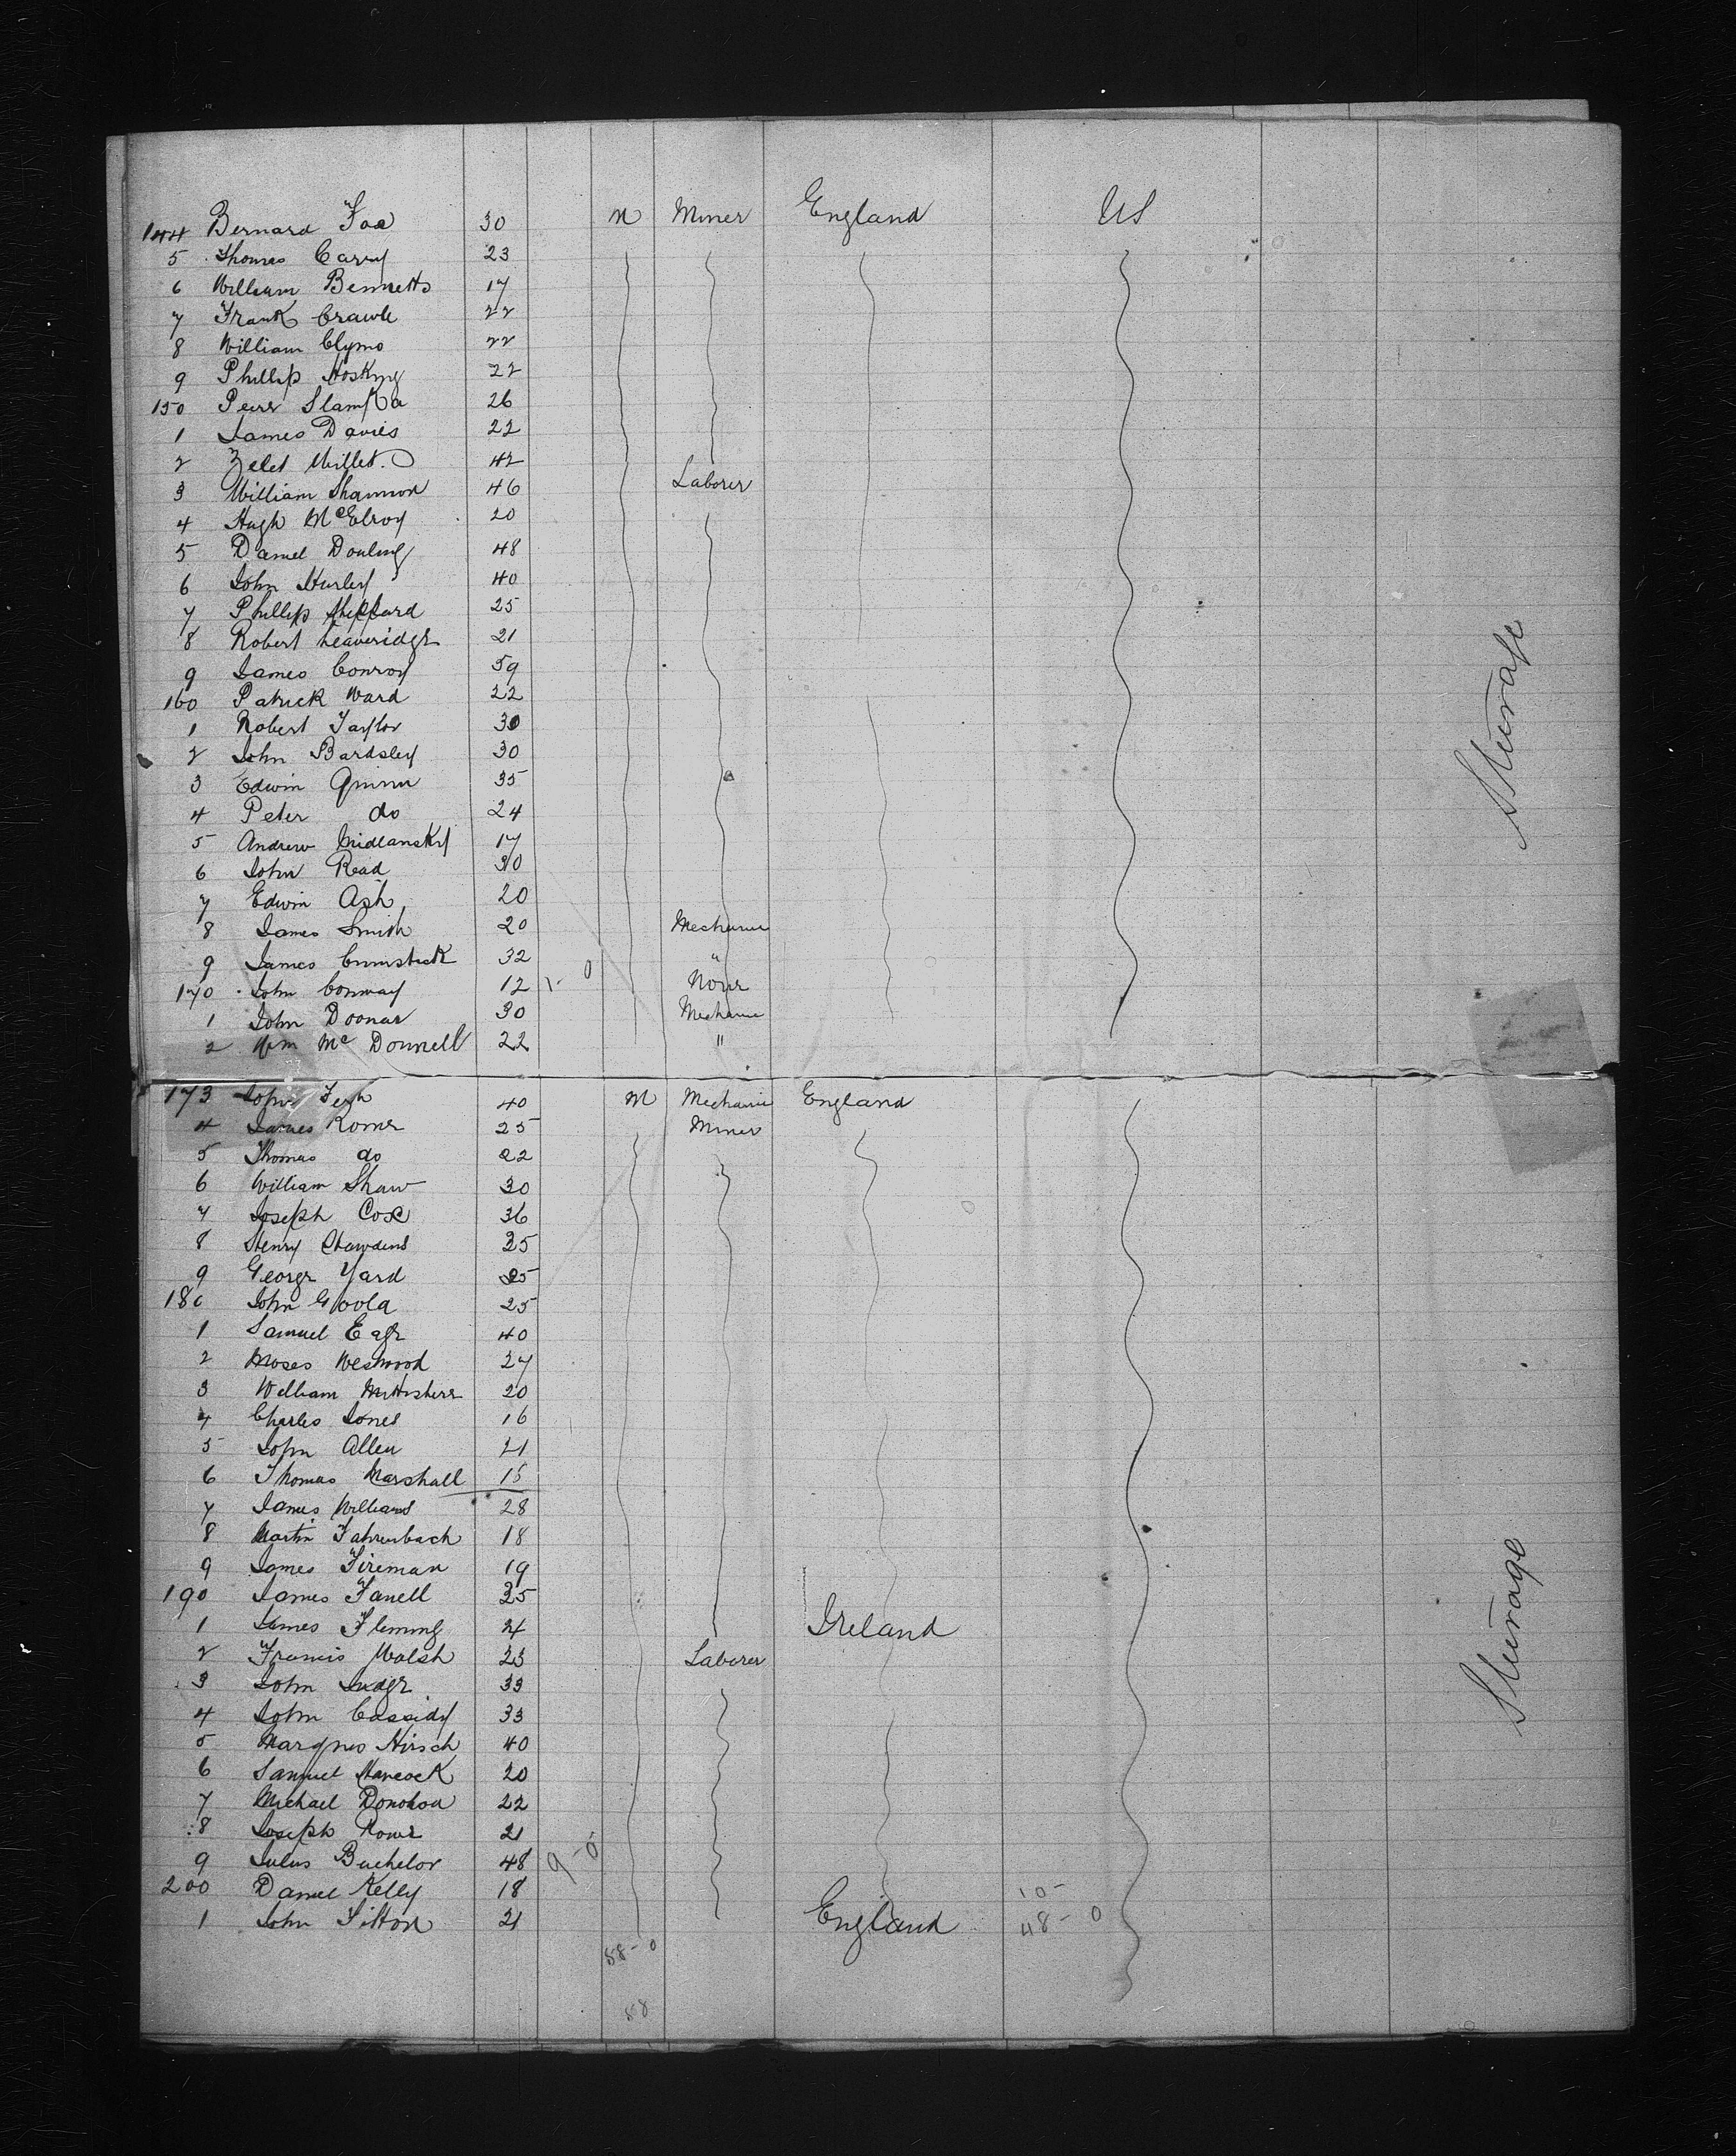 144 Bernard Fox 30 M Miner England US
5 Thomas Carry 23
6 William Bennetts 17
7 Frank Crawle 22
8 William Clymo 22
9 Phillip Hosking 22
150 26
1 James Davies 22
2 Millet 42
3 William Shannon 46 Laborer
4 Hugh McElroy 20
5 Daniel Douling 48
6 John Hurley 40
7 Phillip Sheppard 25
8 Robert Leaveridge 21
9 James Conroy 59
160 Patrick Ward 22
1 Robert Taylor 30
2 John Bardsley 30
3 Edwin Quinn 35
4 Peter do 24
5 Andrew Midlansky 17
6 John Read 30
7 Edwin Ash 20
8 James Smith 20 Mechanic
9 James 32 "
170 John Conway 12 1-0 None
1 John Doonar 30 Mechanic
2 Wm McDonnell 22 "
Sturage
173 John 40 M Mechanic England
4 James Rome 25 Miner
5 Thomas do 22
6 William Shaw 30
7 Joseph Cox 36
8 Henry 25
9 George Yard 25
180 John Goold 25
1 Samuel 40
2 Moses Westwood 27
3 William 20
4 Charles Jones 16
5 John Allen 21
6 Thomas Marshall 15
7 James Williams 28
8 Martin Fahrenbach 18
9 James Fireman 19
190 James Farrell 25
1 James Fleming 24 Ireland
2 Francis Walsh 23 Laborer
3 John Judge 33
4 John Cassidy 33
5 Hirsch 40
6 Samuel Hancock 20
7 Michael Donohoa 22
8 Joseph Rowe 21
9 Julus Buchelor 48 9-0
200 Daniel Kelly 18 10-
1 John Fitton 21 England 48-0
58-0
58
Sturage